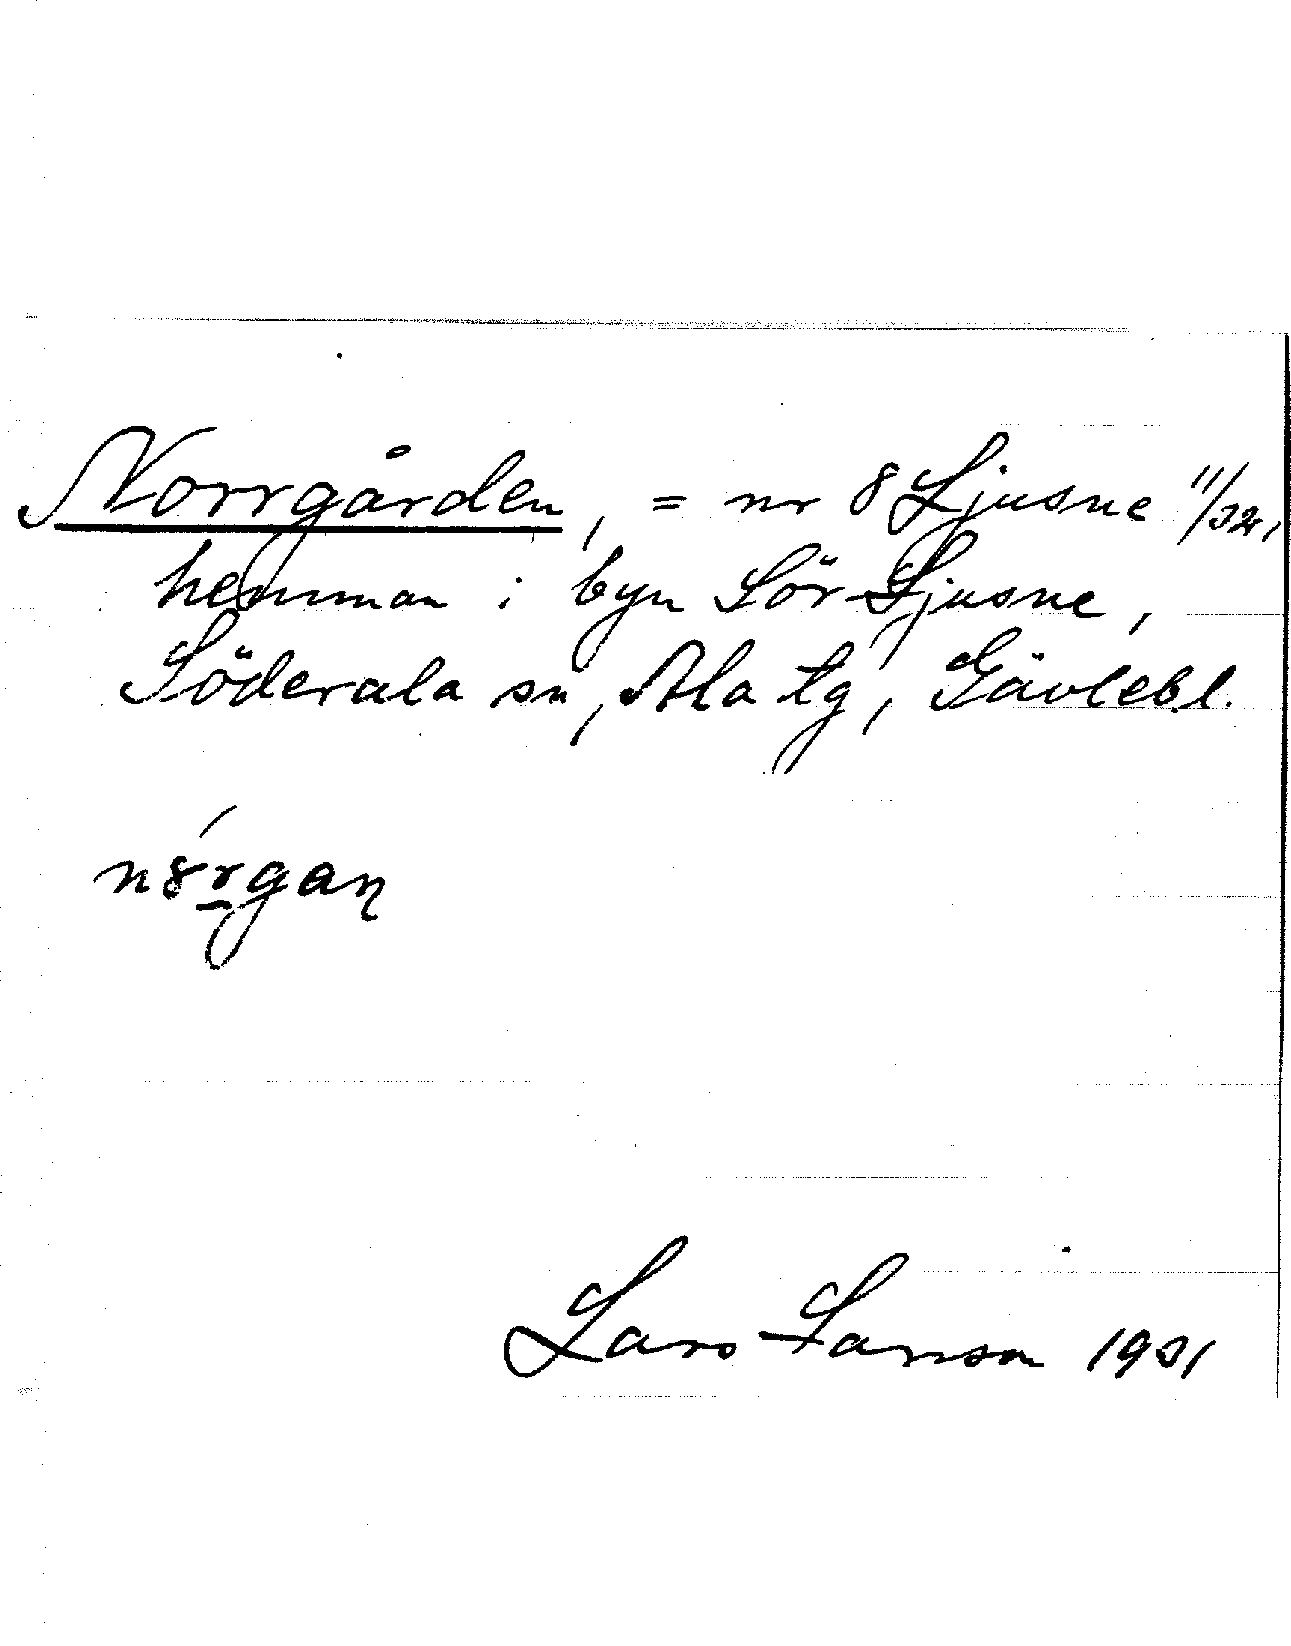 Norrgården, = nr 8 Ljusne 11/32,
hemman i byn Sör-Ljusne,
Söderala sn, Ala tg, Gävlebl.
n8́rgaɳ
Lars Larsson 1931